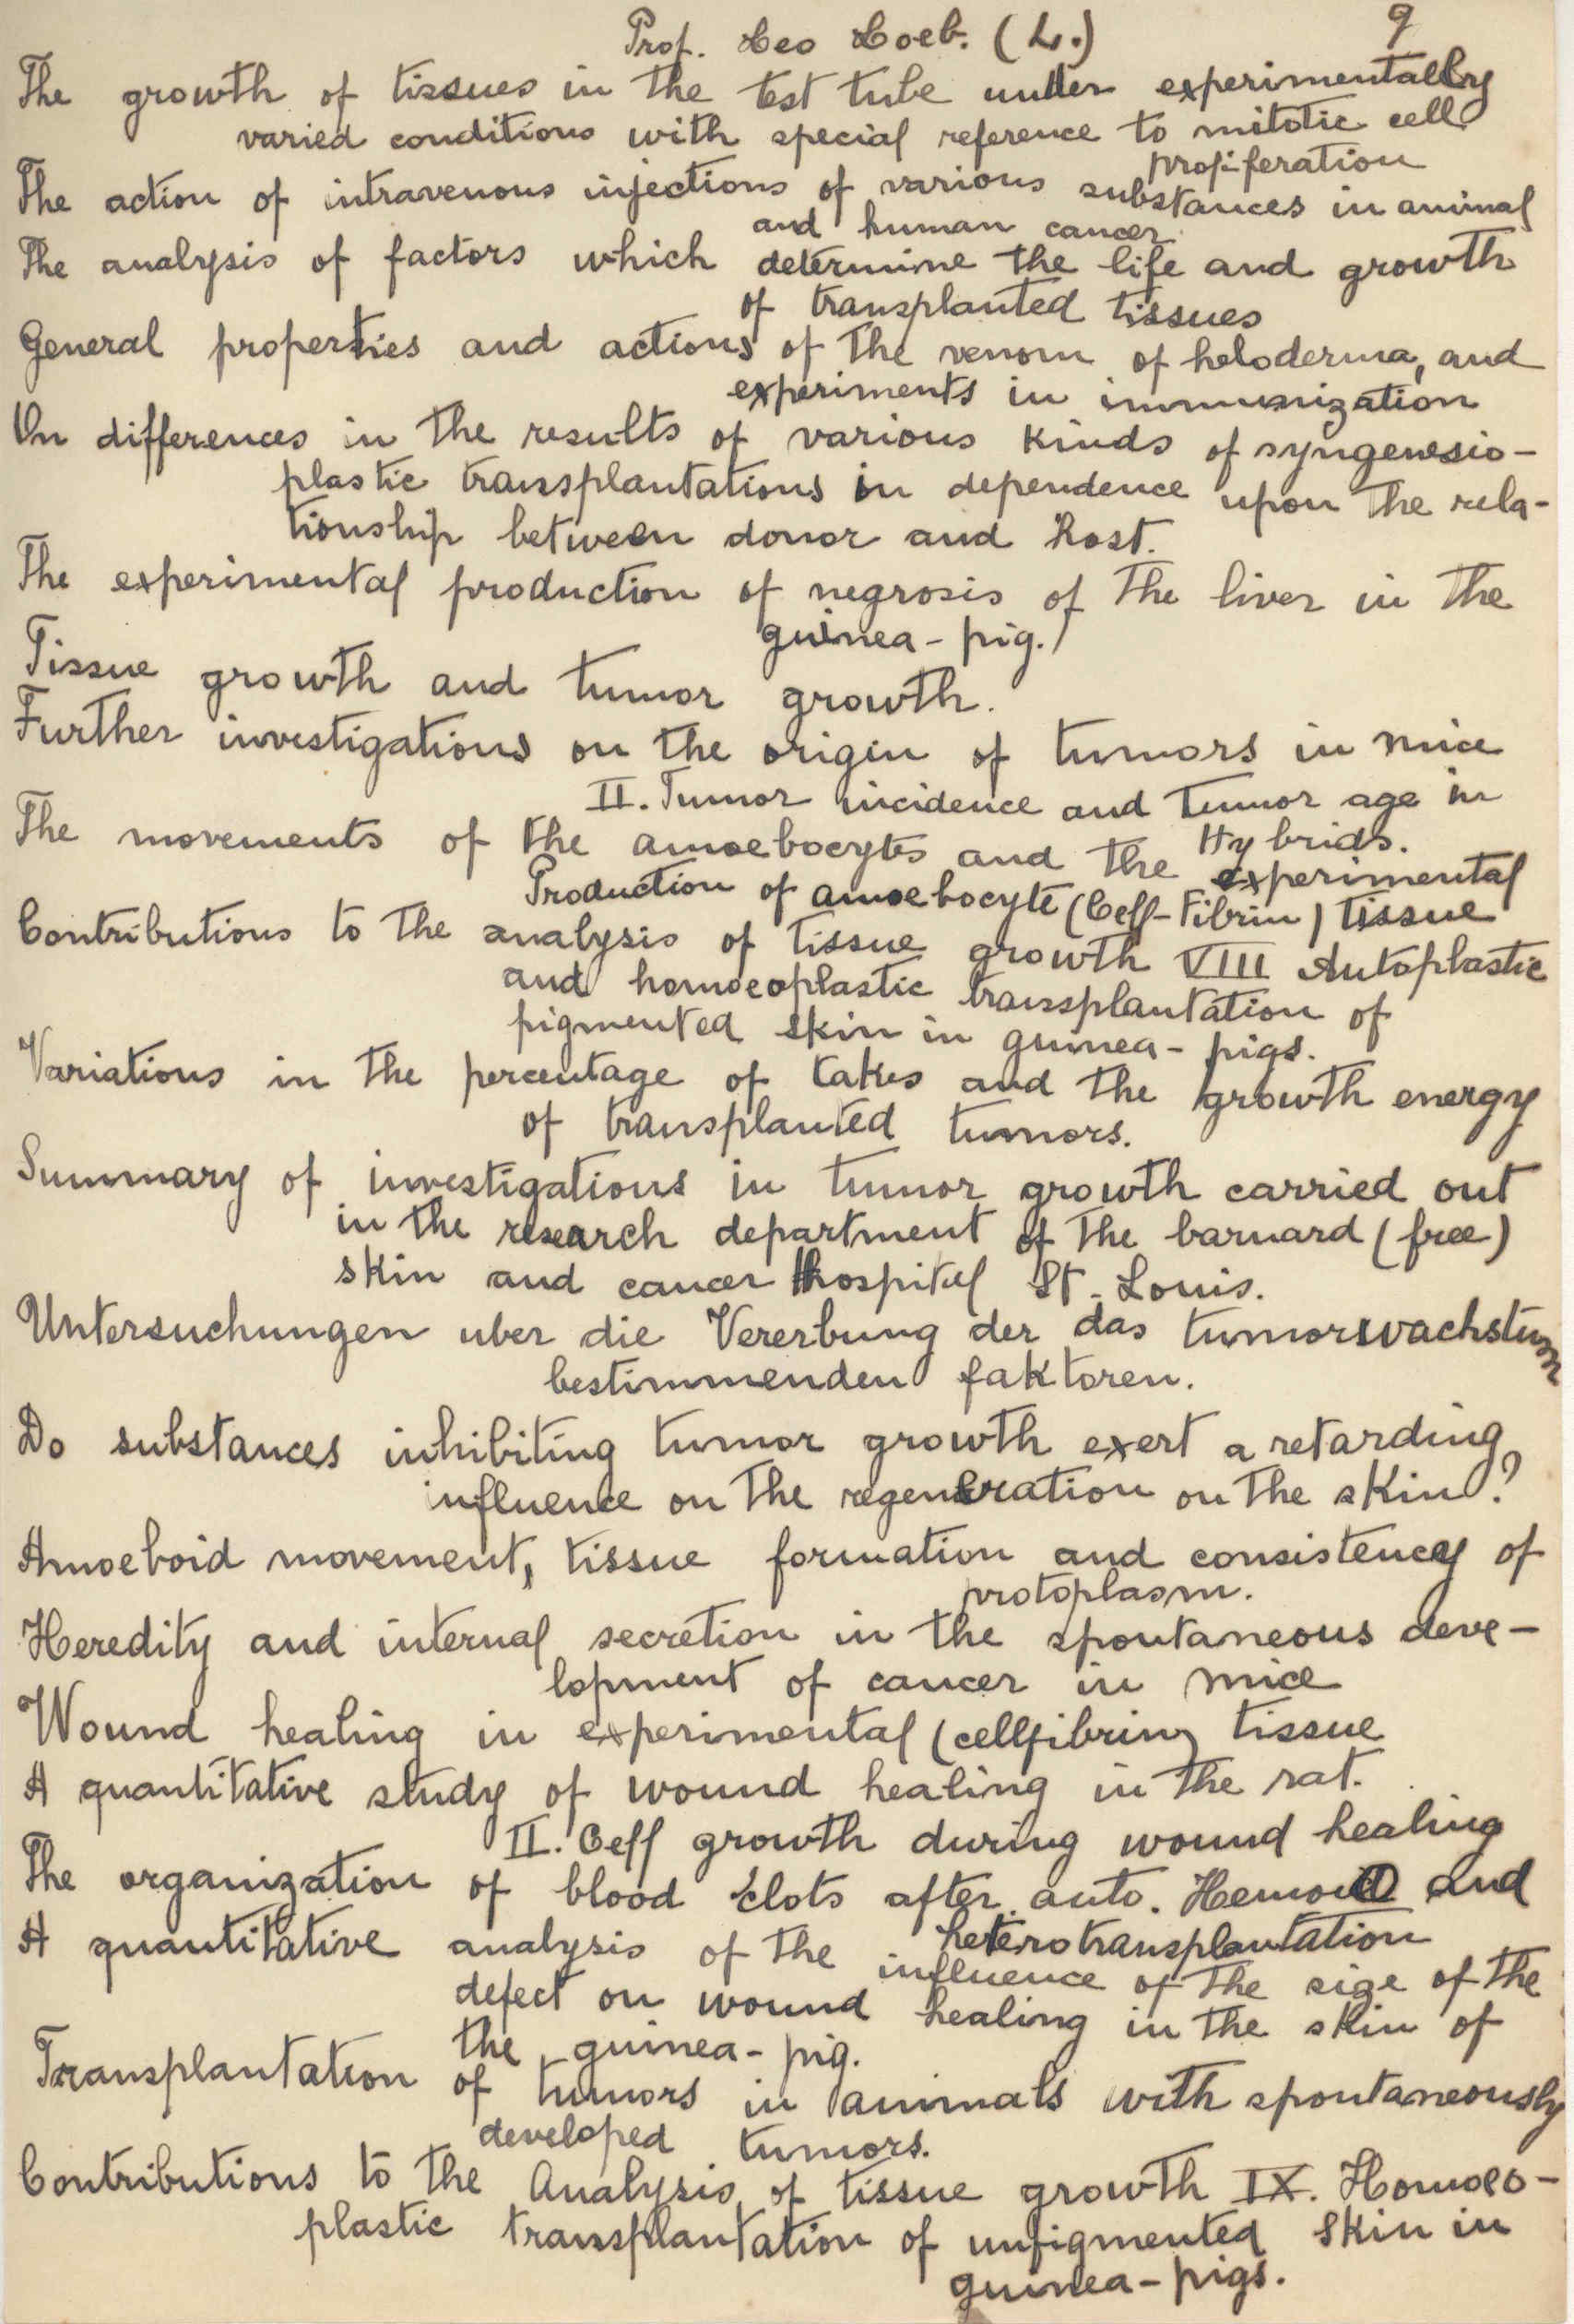 Prof. Leo Loeb. (L.) 9
The growth of tissues in the test tube under experimentally
varied conditions with special reference to mitotic cell
proliferation
The action of intravenous injections of various substances in animal
and human cancer.
The analysis of factors which determine the life and growth
of transplanted tissues
General properties and actions of the venom of heloderma, and
experiments in immunization
On differences in the results of various kinds of syngenesio-
plastic transplantations in dependence upon the rela-
tionship between donor and host.
The experimental production of negrosis of the liver in the
guinea-pig.
Tissue growth and tumor growth.
Further investigations on the origin of tumors in mice
II. Tumor incidence and tumor age in
Hybrids.
The movements of the amoebocytes and the experimental
Production of amoebocyte (Cell-Fibrin) tissue
Contributions to the analysis of tissue growth VIII Autoplastic
and homoeoplastic transplantation of
pigmented skin in guinea-pigs.
Variations in the percentage of takes and the growth energy
of transplanted tumors.
Summary of investigations in tumor growth carried out
in the research department of the barnard (free)
skin and cancer hospital St. Louis.
Untersuchungen uber die Vererbung der das tumorwachstum
bestimmenden faktoren.
Do substances inhibiting tumor growth exert a retarding
influence on the regeneration on the skin?
Amoeboid movement, tissue formation and consistency of
protoplasm.
Heredity and internal secretion in the spontaneous deve-
lopment of cancer in mice
Wound healing in experimental (cellfibrin) tissue
A quantitative study of wound healing in the rat.
II. Cell growth during wound healing
The organization of blood clots after auto. and
heterotransplantation
A quantitative analysis of the influence of the size of the
defect on wound healing in the skin of
the guinea-pig.
Transplantation of tumors in animals with spontaneously
developed tumors.
Contributions to the Analysis of tissue growth IX. Homoeo-
plastic transplantation of unpigmented skin in
guinea-pigs.